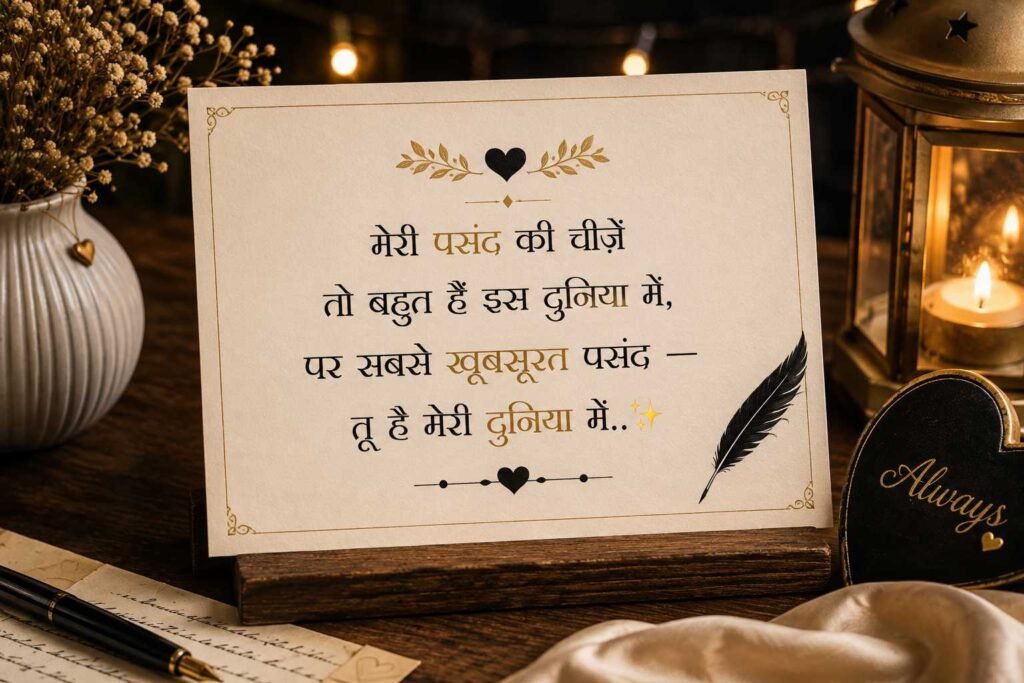 मेरी पसंद की चीज़ें
तो बहुत हैं इस दुनिया में,
पर सबसे खूबसूरत पसंद —
तू है मेरी दुनिया में..✨
Always